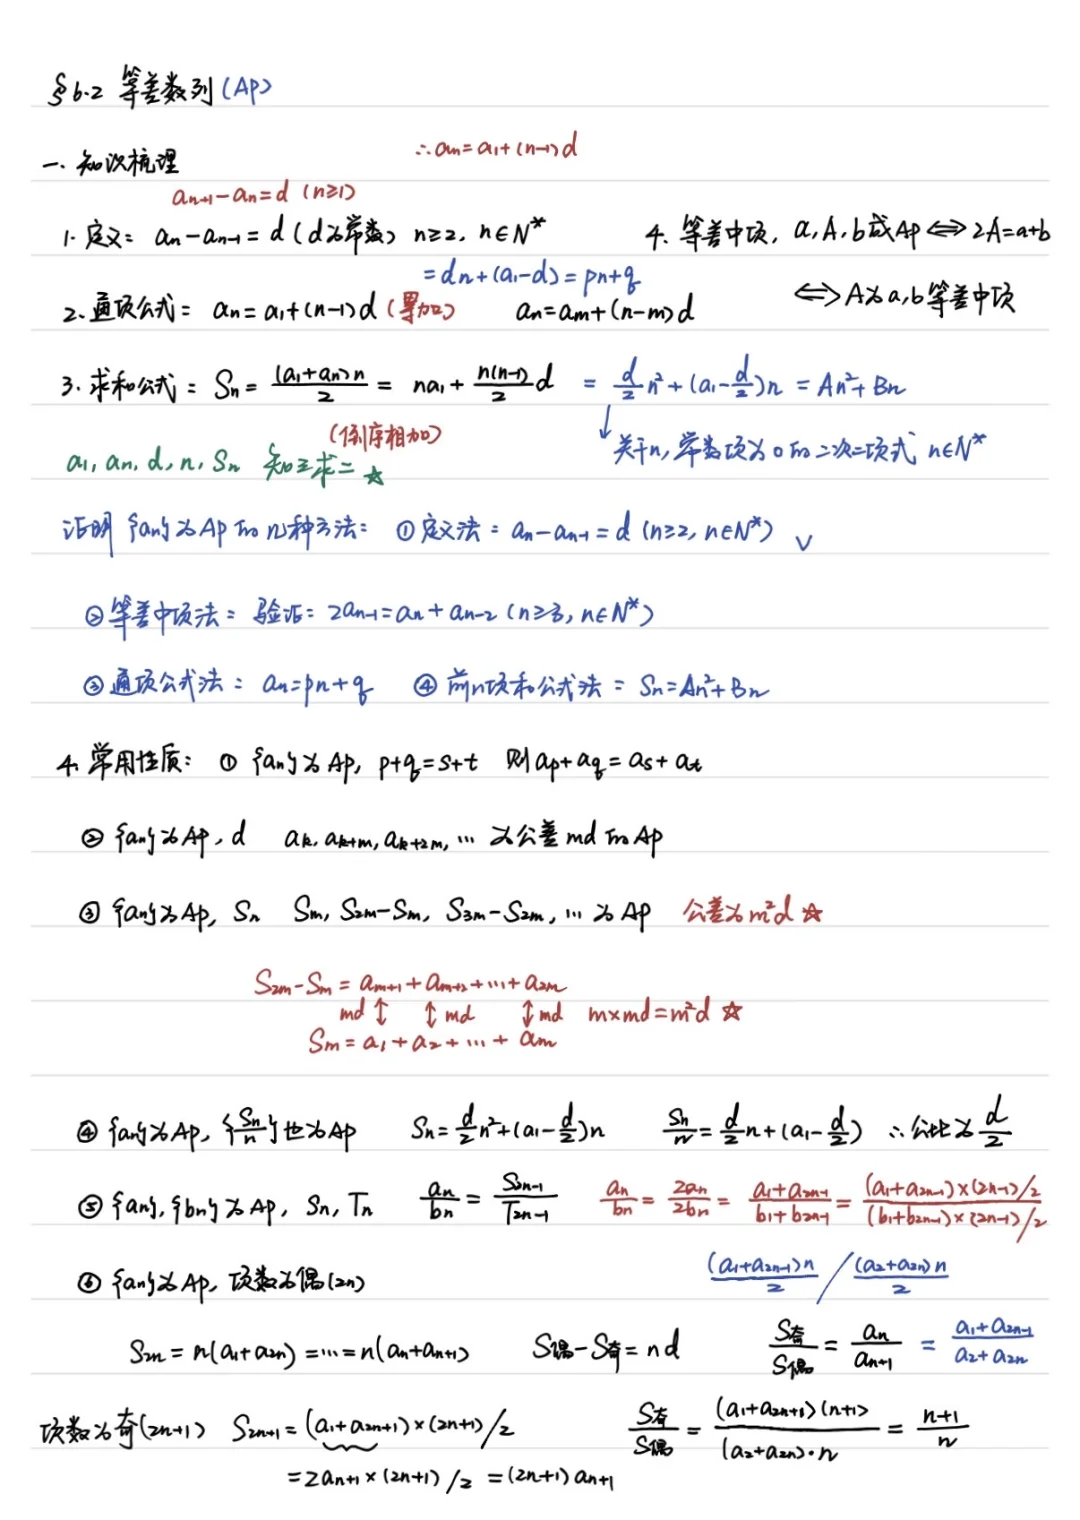 §6.2 等差数列(AP)
∴an=a1+(n-1)d
一. 知识梳理
an+1-an=d (n≥1)
1. 定义: an-an-1=d(d为常数) n≥2, n∈N*
4. 等差中项, a,A,b成AP⟺2A=a+b
=dn+(a1-d)=pn+q
⟺A为a,b等差中项
2. 通项公式: an=a1+(n-1)d(累加) an=am+(n-m)d
3. 求和公式: Sn=(a1+an)n/2=na1+n(n-1)/2 d = d/2 n²+(a1-d/2)n = An²+Bn
(倒序相加)
↓关于n,常数项为0的二次二项式 n∈N*
a1, an, d, n, Sn 知三求二 ☆
证明{an}为AP的几种方法: ①定义法: an-an-1=d (n≥2, n∈N*) ∨
②等差中项法: 验证: 2an-1=an+an-2 (n≥3, n∈N*)
③通项公式法: an=pn+q ④前n项和公式法: Sn=An²+Bn
4. 常用性质: ①{an}为AP, p+q=s+t 则ap+aq=as+at
②{an}为AP, d ak, ak+m, ak+2m, … 为公差md的AP
③{an}为AP, Sn Sm, S2m-Sm, S3m-S2m, … 为AP 公差为m²d ☆
S2m-Sm=am+1+am+2+…+a2m
md↕ ↕md ↕md m×md=m²d ☆
Sm=a1+a2+…+am
④{an}为AP, {Sn/n}也为AP Sn=d/2 n²+(a1-d/2)n Sn/n=d/2 n+(a1-d/2) ∴公比为d/2
⑤{an},{bn}为AP, Sn,Tn an/bn=S2n-1/T2n-1 an/bn=2an/2bn=a1+a2n-1/b1+b2n-1=(a1+a2n-1)×(2n-1)/2/(b1+b2n-1)×(2n-1)/2
⑥{an}为AP, 项数为偶(2n)
(a1+a2n-1)n/2 / (a2+a2n)n/2
S2n=n(a1+a2n)=…=n(an+an+1) S偶-S奇=nd S奇/S偶=an/an+1=a1+a2n-1/a2+a2n
项数为奇(2n+1) S2n+1=(a1+a2n+1)×(2n+1)/2 S奇/S偶=(a1+a2n+1)(n+1)/(a2+a2n)·n=n+1/n
=2an+1×(2n+1)/2=(2n+1)an+1